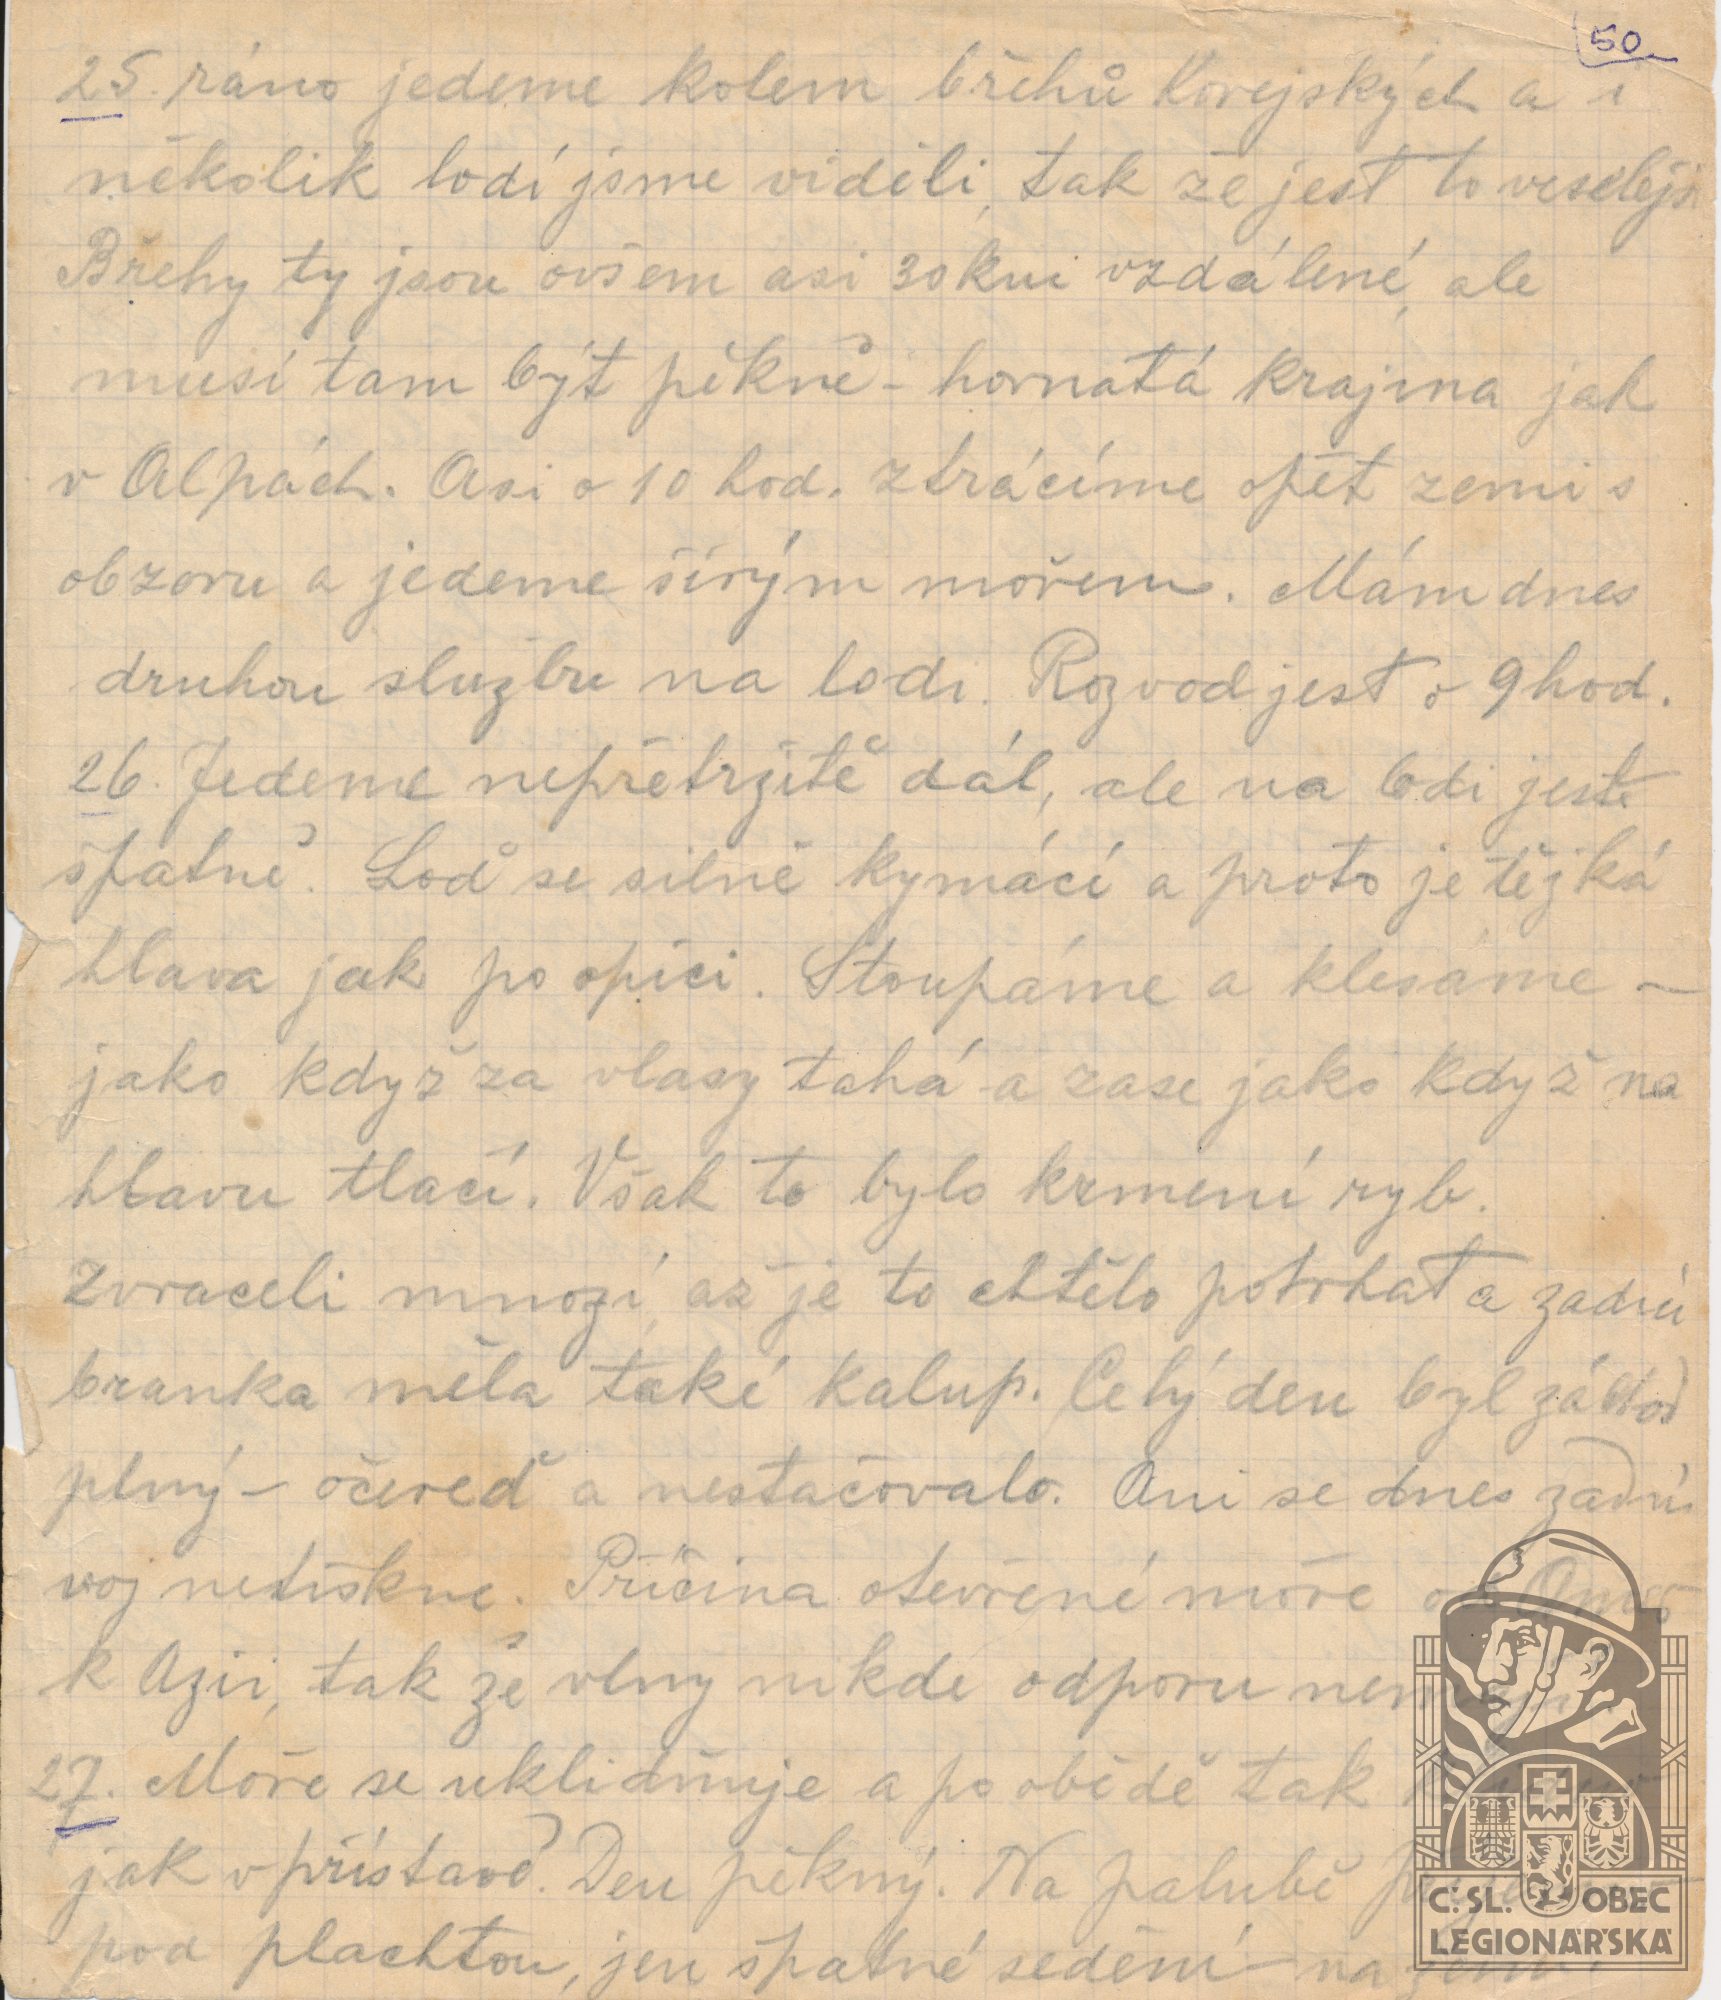 50
25. ráno jedeme kolem břehů Korejských a i
několik lodí jsme viděli, tak že jest to veselejší
Břehy ty jsou ovšem asi 30 km vzdálené, ale
musí tam být pěkně - hornatá krajina jak
v Alpách. Asi o 10 hod. ztrácíme opět zemi s
obzoru a jedeme širým mořem. Mám dnes
druhou službu na lodi. Rozvod jest o 9 hod.
26. Jedeme nepřetržitě dál, ale na lodi jest
špatně. Loď se silně kymácí a proto je těžká
hlava jak po opici. Stoupáme a klesáme –
jako když za vlasy tahá a zase jako když na
hlavu tlačí. Však to bylo krmení ryb.
Zvraceli mnozí, až je to chtělo potrhat a zadní
branka měla také kalup. Celý den byl záchod
plný – očereď a nestačovalo. Ani se dnes zadní
voj netiskne. Příčina otevřené moře od
k Azii, tak že vlny nikde odporu
27. Moře se uklidňuje a po obědě tak
jak v přístavě. Den pěkný. Na palubě
pod plachtou, jen špatné sedění – na
Č. SL. OBEC
LEGIONÁŘSKÁ